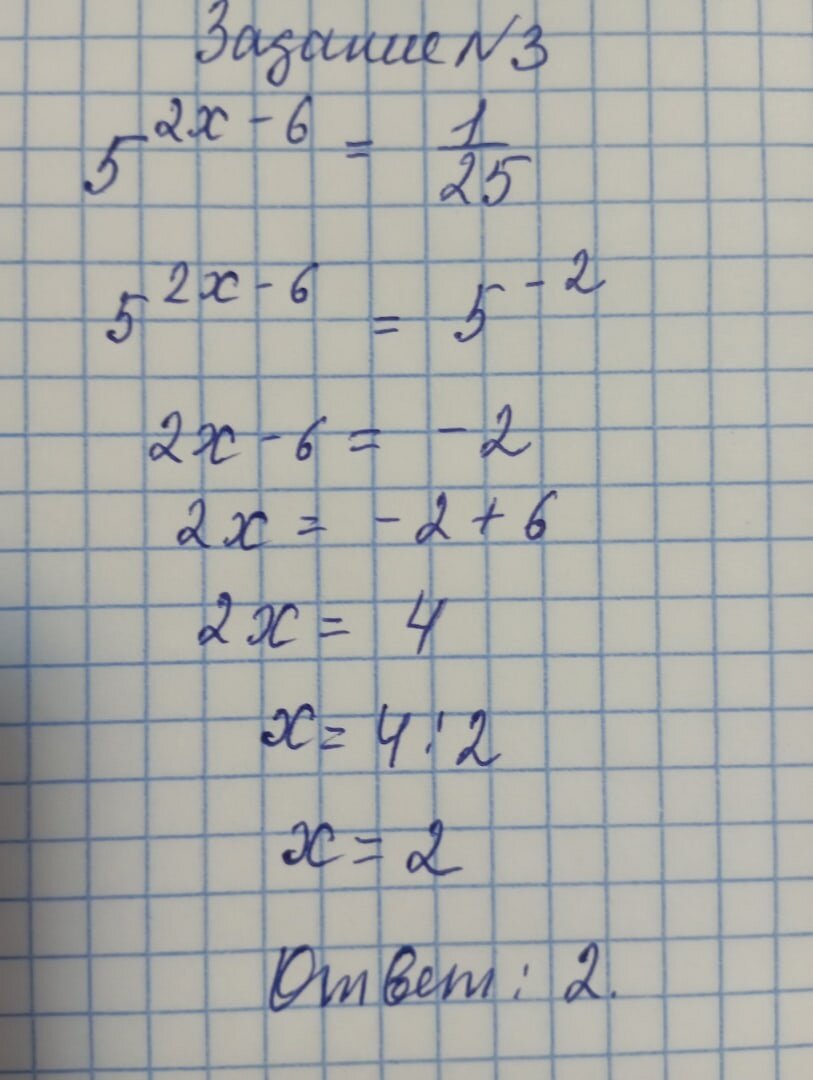 Задание N 3
5^{2x-6} = \frac{1}{25}
5^{2x-6} = 5^{-2}
2x-6 = -2
2x = -2+6
2x = 4
x = 4:2
x = 2
Ответ: 2.